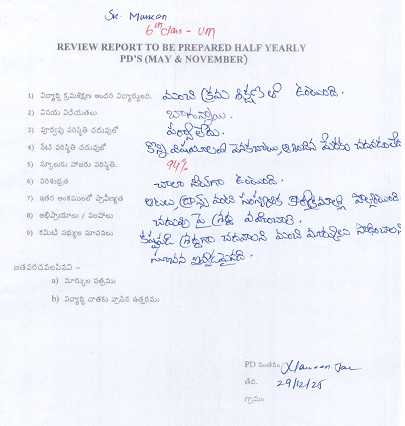 Sr. Muncon
6th class - UM
REVIEW REPORT TO BE PREPARED HALF YEARLY
PD'S (MAY & NOVEMBER)
1) విద్యార్థి క్రమశిక్షణ అందరి విద్యార్థులందు. మంచి క్రమ శిక్షణలో ఉంటుంది.
2) వినయ విధేయతలు బాగున్నాయి.
3) పూర్వపు పరిస్థితి చదువులో పర్వాలేదు.
4) నేటి పరిస్థితి చదువులో కొన్ని విషయాలలో వెనకబాటు
5) స్కూలుకు హాజరు పరిస్థితి. 94%
6) పరిశుభ్రత చాలా నీట్‌గా ఉంటుంది.
7) ఇతర అంశములలో ప్రావీణ్యత ఆటలు డ్రాన్స్ వంటి సాంస్కృతిక
8) అభిప్రాయాలు / సలహాలు చదువు పై శ్రద్ధ వహించాలి.
9) కమిటీ సభ్యుల సూచనలు కష్టపడి శ్రద్ధగా చదవాలని మంచి మార్కులు సాధించాలని
సూచన ఇవ్వడమైనది.
జతపరచవలసినవి –
a) మార్కుల పత్రము
b) విద్యార్థి దాతకు వ్రాసిన ఉత్తరము
PD సంతకం
తేది. 29/12/25
గ్రామం